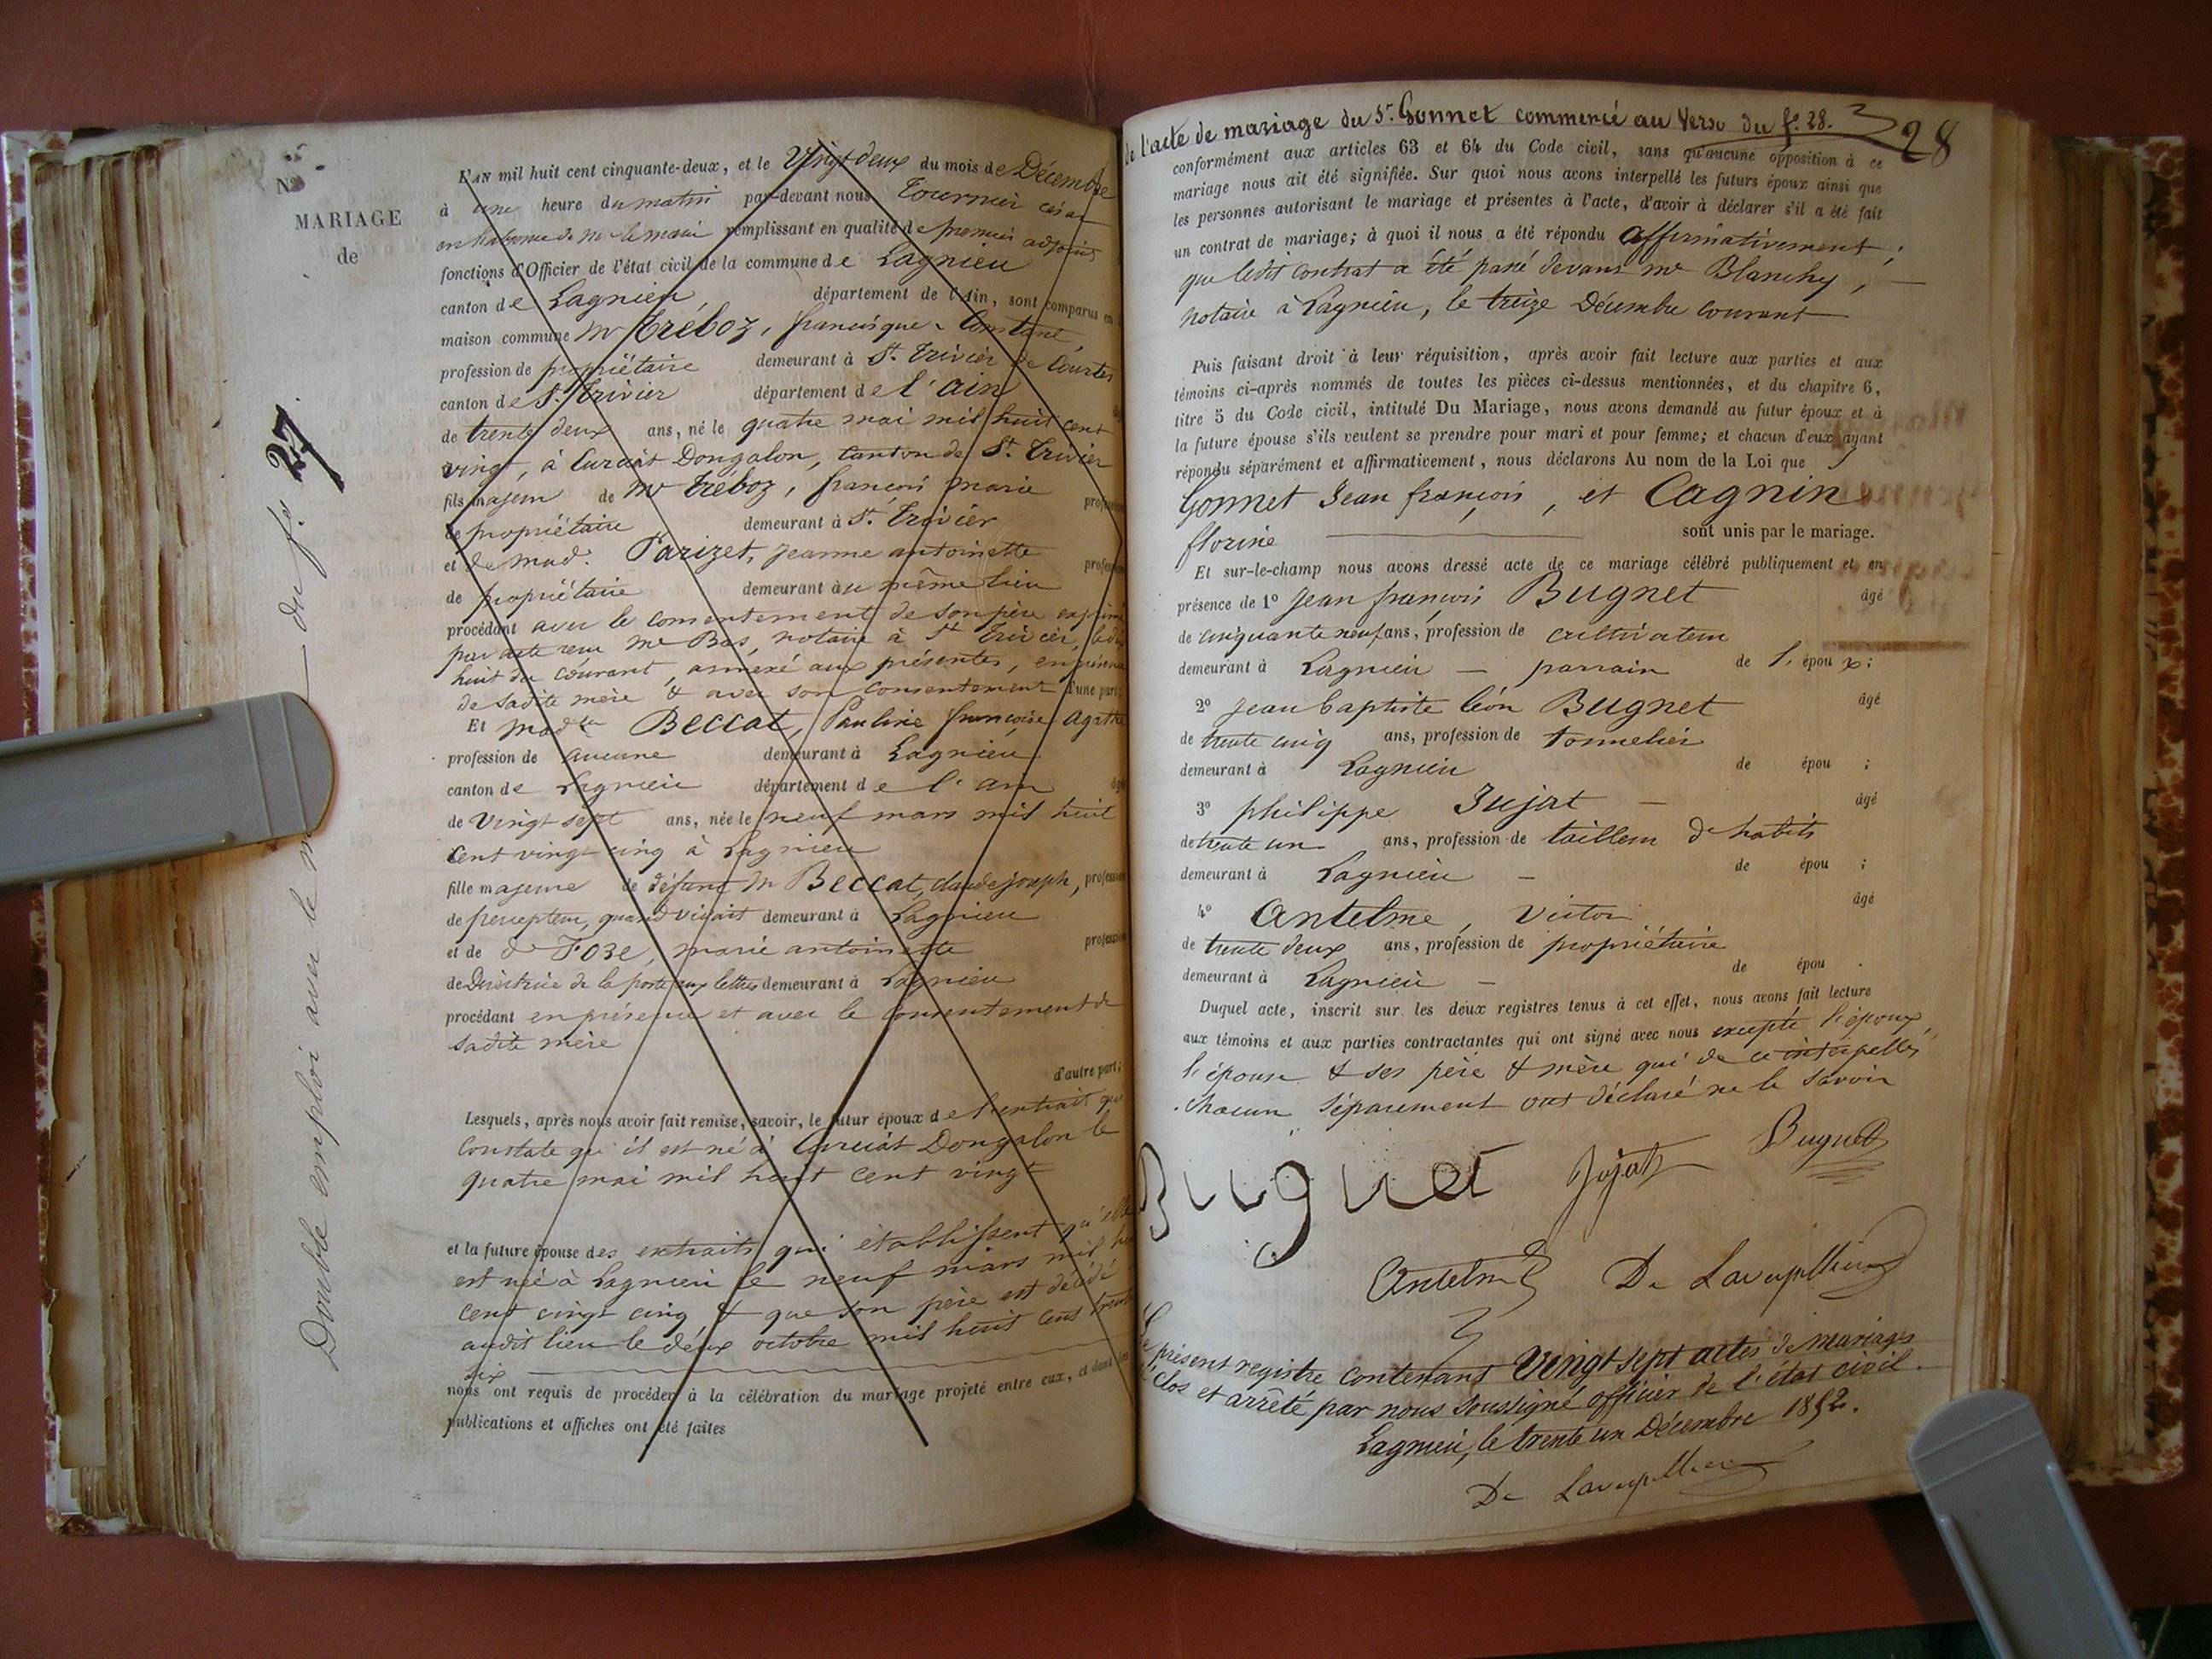 Nº
MARIAGE
de
Double emploi avec le du fo 27.
L'AN mil huit cent cinquante-deux, et le Vingt deux du mois de Décembre
à une heure du matin par-devant nous Tournier césar
en l'absence de Mr le maire remplissant en qualité de premier adjoint
fonctions d'Officier de l'état civil de la commune de Lagnieu
canton de Lagnieu, département de l'Ain, sont comparus en
maison commune Mr Tréboz, francisque Constant
profession de propriétaire demeurant à St. Trivier de Courtes
canton de St. Trivier département de l'ain
de trente deux ans, né le quatre mai mil huit cent
vingt, à Curciat Dongalon, canton de St. Trivier
fils majeur de Mr Tréboz, françois marie
de propriétaire demeurant à St. Trivier
et de mad. Parizet, jeanne antoinette
de propriétaire demeurant au même lieu
procédant avec le consentement de son père exprimé
par acte reçu Me Bas, notaire à St Trivier, le
huit du courant, annexé aux présentes, en présence
de sadite mère & avec son consentement d'une part;
Et madlle Beccat, Pauline françoise Agathe
profession de aucune demeurant à Lagnieu
canton de Lagnieu département de l'ain
de Vingt sept ans, née le neuf mars mil huit
cent vingt cinq à Lagnieu
fille majeure de défunt Mr Beccat, claude joseph,
de percepteur, quand vivait demeurant à Lagnieu
et de de Foze, marie antoinette
de Directrice de la poste aux lettres demeurant à Lagnieu
procédant en présence et avec le consentement de
sadite mère
d'autre part;
Lesquels, après nous avoir fait remise, savoir, le futur époux de l'extrait qui
Constate qu'il est né à Curciat Dongalon le
quatre mai mil huit cent vingt
et la future épouse des extraits qui établissent qu'elle
est née à Lagnieu le neuf mars mil
cent vingt cinq & que son père est décédé
audit lieu le deux octobre mil huit cent trente
six
nous ont requis de procéder à la célébration du mariage projeté entre eux, et dont les
publications et affiches ont été faites
de l'acte de mariage du Sr. Gonnet commencé au Verso du fo. 28. 28
conformément aux articles 63 et 64 du Code civil, sans qu'aucune opposition à ce
mariage nous ait été signifiée. Sur quoi nous avons interpellé les futurs époux ainsi que
les personnes autorisant le mariage et présentes à l'acte, d'avoir à déclarer s'il a été fait
un contrat de mariage; à quoi il nous a été répondu affirmativement;
que ledit contrat a été passé devant me Blanchy,
notaire à Lagnieu, le treize Décembre courant
Puis faisant droit à leur réquisition, après avoir fait lecture aux parties et aux
témoins ci-après nommés de toutes les pièces ci-dessus mentionnées, et du chapitre 6,
titre 5 du Code civil, intitulé Du Mariage, nous avons demandé au futur époux et à
la future épouse s'ils veulent se prendre pour mari et pour femme; et chacun d'eux ayant
répondu séparément et affirmativement, nous déclarons Au nom de la Loi que
Gonnet Jean françois, et Cagnin
florine sont unis par le mariage.
Et sur-le-champ nous avons dressé acte de ce mariage célébré publiquement et en
présence de 1º Jean françois Bugnet âgé
de cinquante neuf ans, profession de cultivateur
demeurant à Lagnieu — parrain de l'époux;
2º Jean baptiste léon Bugnet âgé
de trente cinq ans, profession de tonnelier
demeurant à Lagnieu de épou ;
3º philippe Jujat — âgé
de trente un ans, profession de tailleur d'habits
demeurant à Lagnieu — de épou ;
4º Antelme, Victor âgé
de trente deux ans, profession de propriétaire
demeurant à Lagnieu — de épou .
Duquel acte, inscrit sur les deux registres tenus à cet effet, nous avons fait lecture
aux témoins et aux parties contractantes qui ont signé avec nous excepté l'époux,
l'épouse & ses père & mère qui de ce interpellés
chacun séparement ont déclaré ne le savoir
Bugnet Jujat Bugnet
Antelme De
Le présent registre contenant Vingt sept actes de mariages
clos et arrêté par nous soussigné officier de l'état civil.
Lagnieu, le trente un Décembre 1852.
De